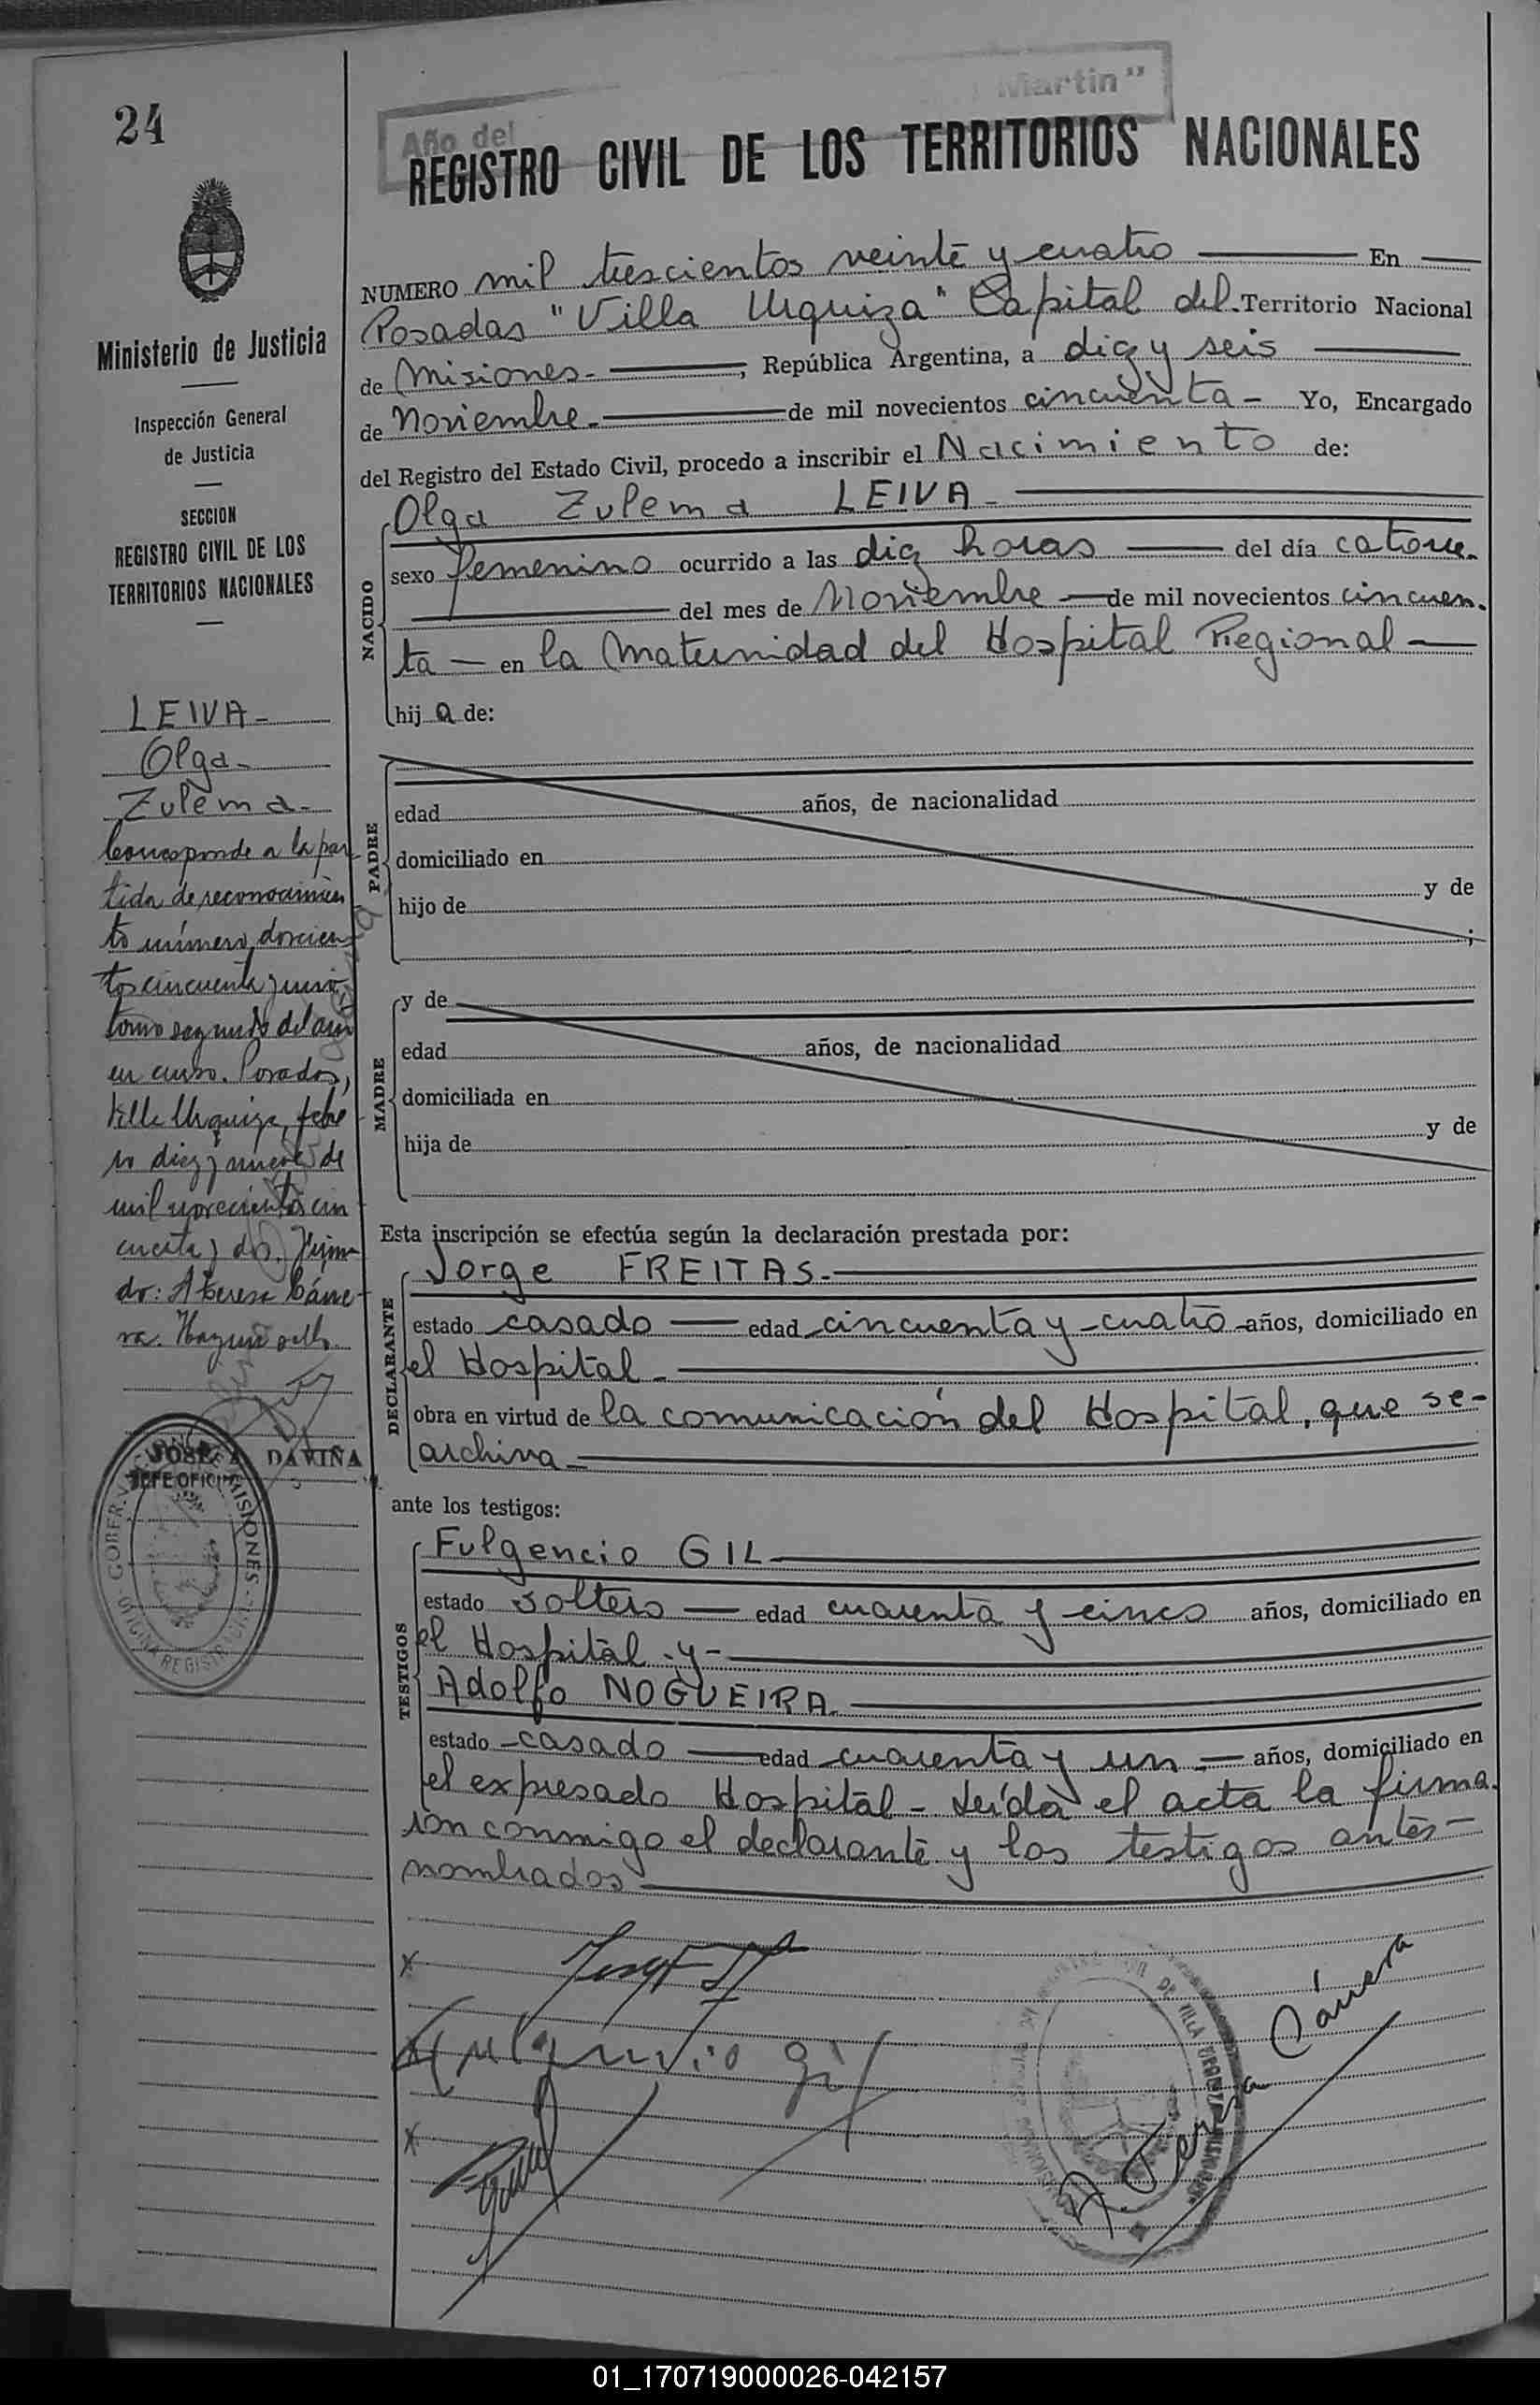 24
Año del Martin"
REGISTRO CIVIL DE LOS TERRITORIOS NACIONALES
Ministerio de Justicia
Inspección General
de Justicia
SECCION
REGISTRO CIVIL DE LOS
TERRITORIOS NACIONALES
LEIVA-
Olga-
Zulema-
Corresponde a la par
tida de reconocimien
to número doscien
tos cincuenta y uno
tomo segundo del año
en curso. Posadas,
Villa Urquiza, febre
ro diez y nueve de
mil novecientos cin
cuenta y dos. Firma
do: A Teresa Cáne-
ra. Hay un sello.
JOSE DAVIÑA
JEFE OFICI
GOBER. MISIONES - OFICINA REGISTR
NUMERO mil trescientos veinte y cuatro En
Posadas "Villa Urquiza" Capital del Territorio Nacional
de Misiones.-, República Argentina, a diez y seis
de Noviembre.- de mil novecientos cincuenta - Yo, Encargado
del Registro del Estado Civil, procedo a inscribir el Nacimiento de:
NACIDO
Olga Zulema LEIVA-
sexo femenino ocurrido a las diez horas del día catorce.
del mes de Noviembre de mil novecientos cincuen-
ta - en la Maternidad del Hospital Regional
hij a de:
PADRE
edad años, de nacionalidad
domiciliado en
hijo de y de
;
MADRE
y de
edad años, de nacionalidad
domiciliada en
hija de y de
Esta inscripción se efectúa según la declaración prestada por:
DECLARANTE
Jorge FREITAS.-
estado casado edad cincuenta y cuatro años, domiciliado en
el Hospital-
obra en virtud de la comunicación del Hospital, que se-
archiva
ante los testigos:
TESTIGOS
Fulgencio GIL
estado soltero edad cuarenta y cinco años, domiciliado en
el Hospital -y-
Adolfo NOGUEIRA.
estado casado edad cuarenta y un - años, domiciliado en
el expresado Hospital - Leída el acta la firma.
ron conmigo el declarante y los testigos antes-
nombrados
x
x Fulgencio Gil
x
DE VILLA URQUIZA
A. Teresa Cánera
01_170719000026-042157